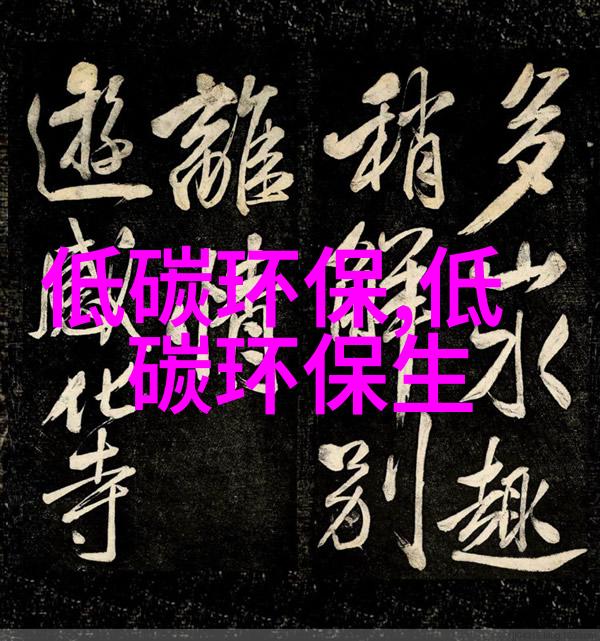 多山水趣
稍解别
離情
遊感化寺
低碳环保,低
碳环保生